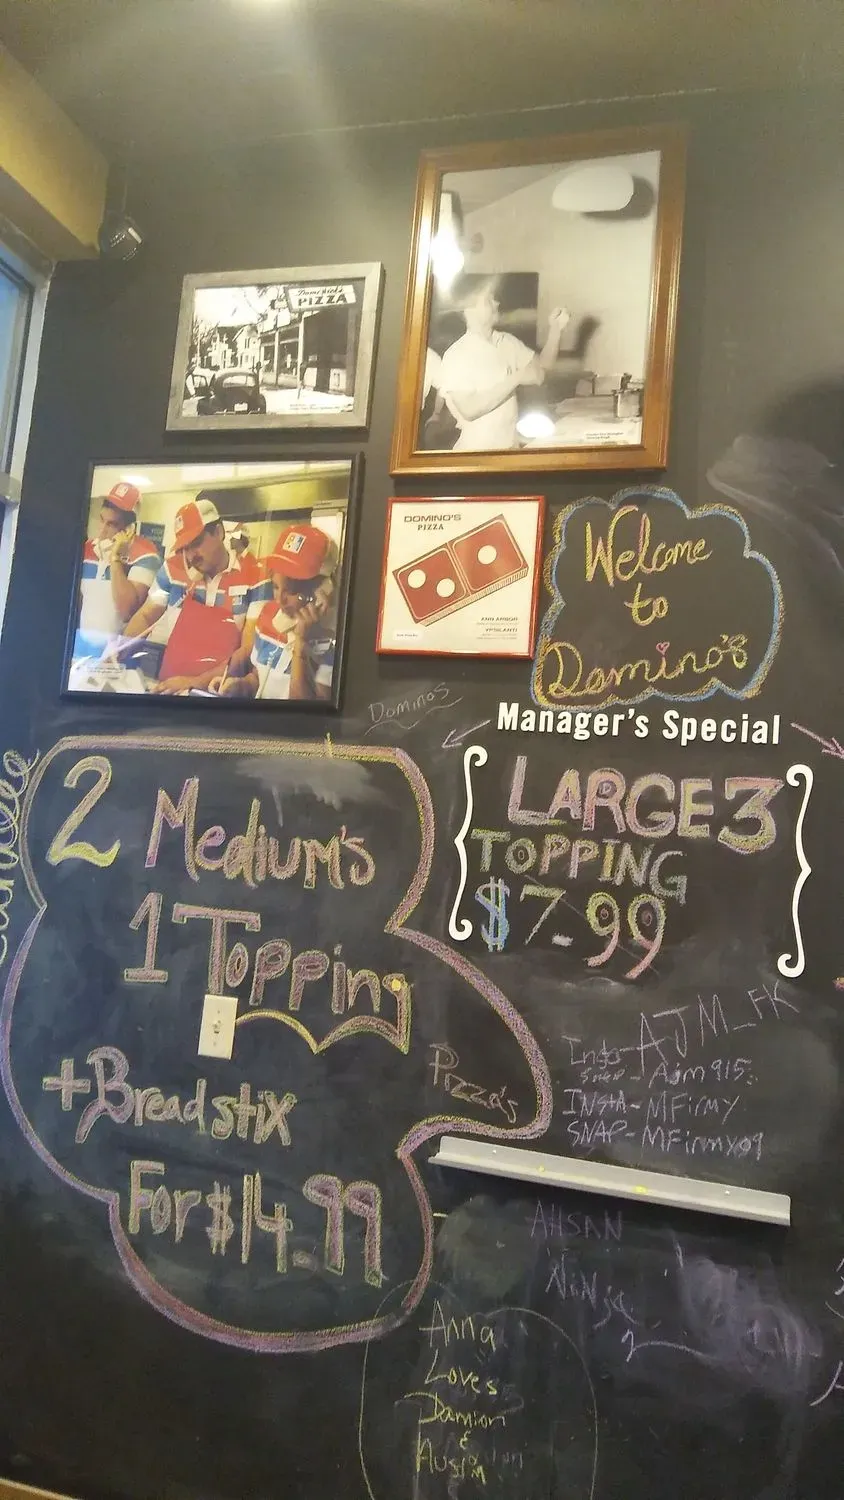 Dominick's
PIZZA
DOMINO'S
PIZZA
ANN ARBOR
YPSILANTI
Welcome
to
Domino's
Dominos
Manager's Special
LARGE 3
TOPPING
$7.99
2 Medium's
1 Topping
Pizza's
+Breadstix
For $14.99
AJM_FK
Snap - Ajm915
INSTA-MFirmy
SNAP-MFirmyx09
AHSAN
Ninja
Anna
Loves
Damion
&
Austin